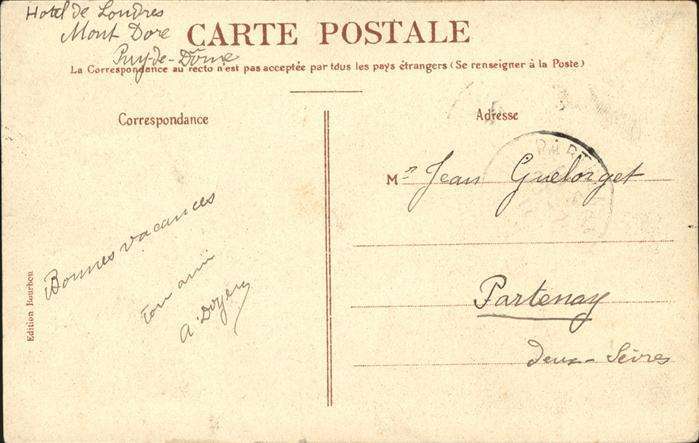 Hotel de Londres
Mont Dore
Puy-de-Dôme
CARTE POSTALE
La Correspondance au recto n'est pas acceptée par tous les pays étrangers (Se renseigner à la Poste)
Correspondance
Adresse
Bonnes vacances
Ton ami
A. Doyen
Mr Jean Guelorget
Partenay
deux-Sèvres
Edition Bourbon
PART